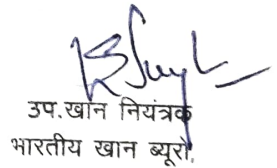 उप.खान नियंत्रक
भारतीय खान ब्यूरो,